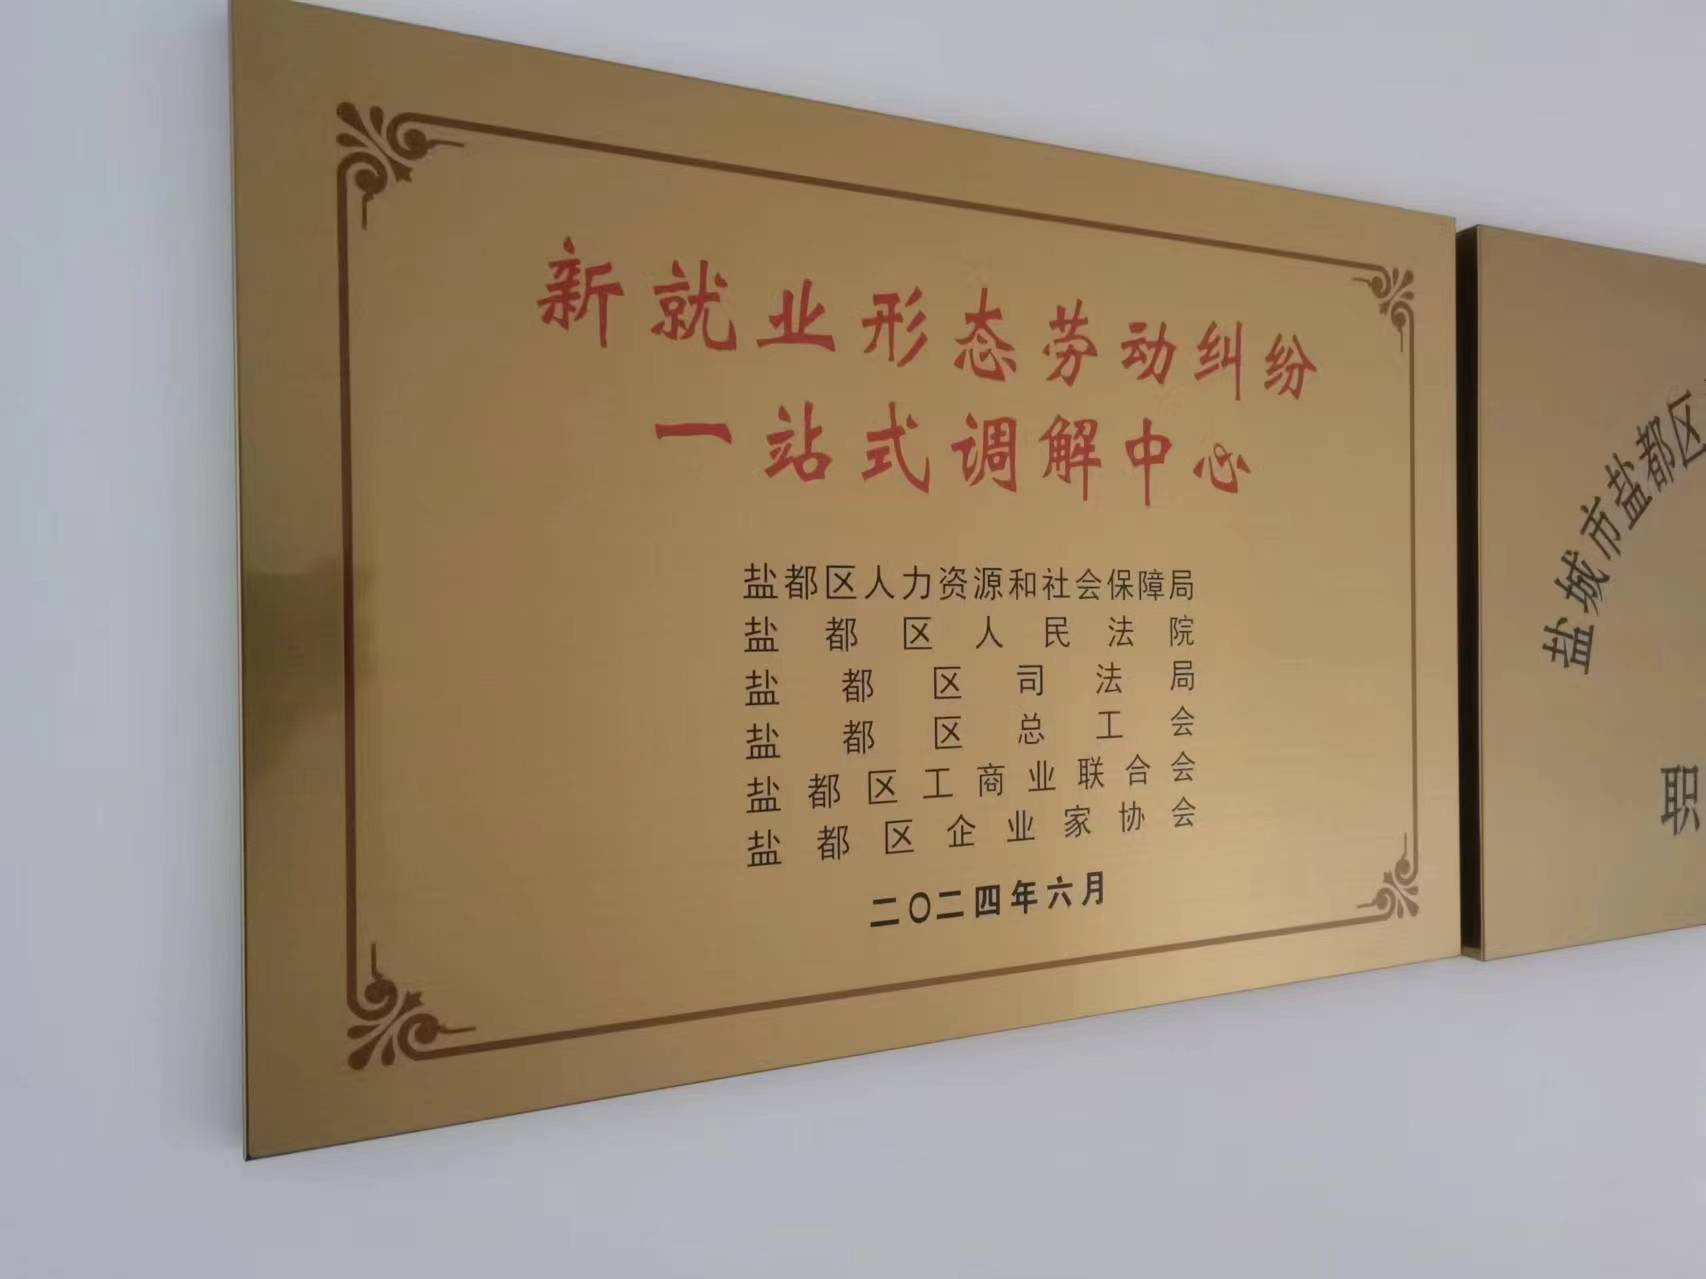 新就业形态劳动纠纷
一站式调解中心
盐都区人力资源和社会保障局
盐都区人民法院
盐都区司法局
盐都区总工会
盐都区工商业联合会
盐都区企业家协会
二〇二四年六月
盐城市盐都区
职